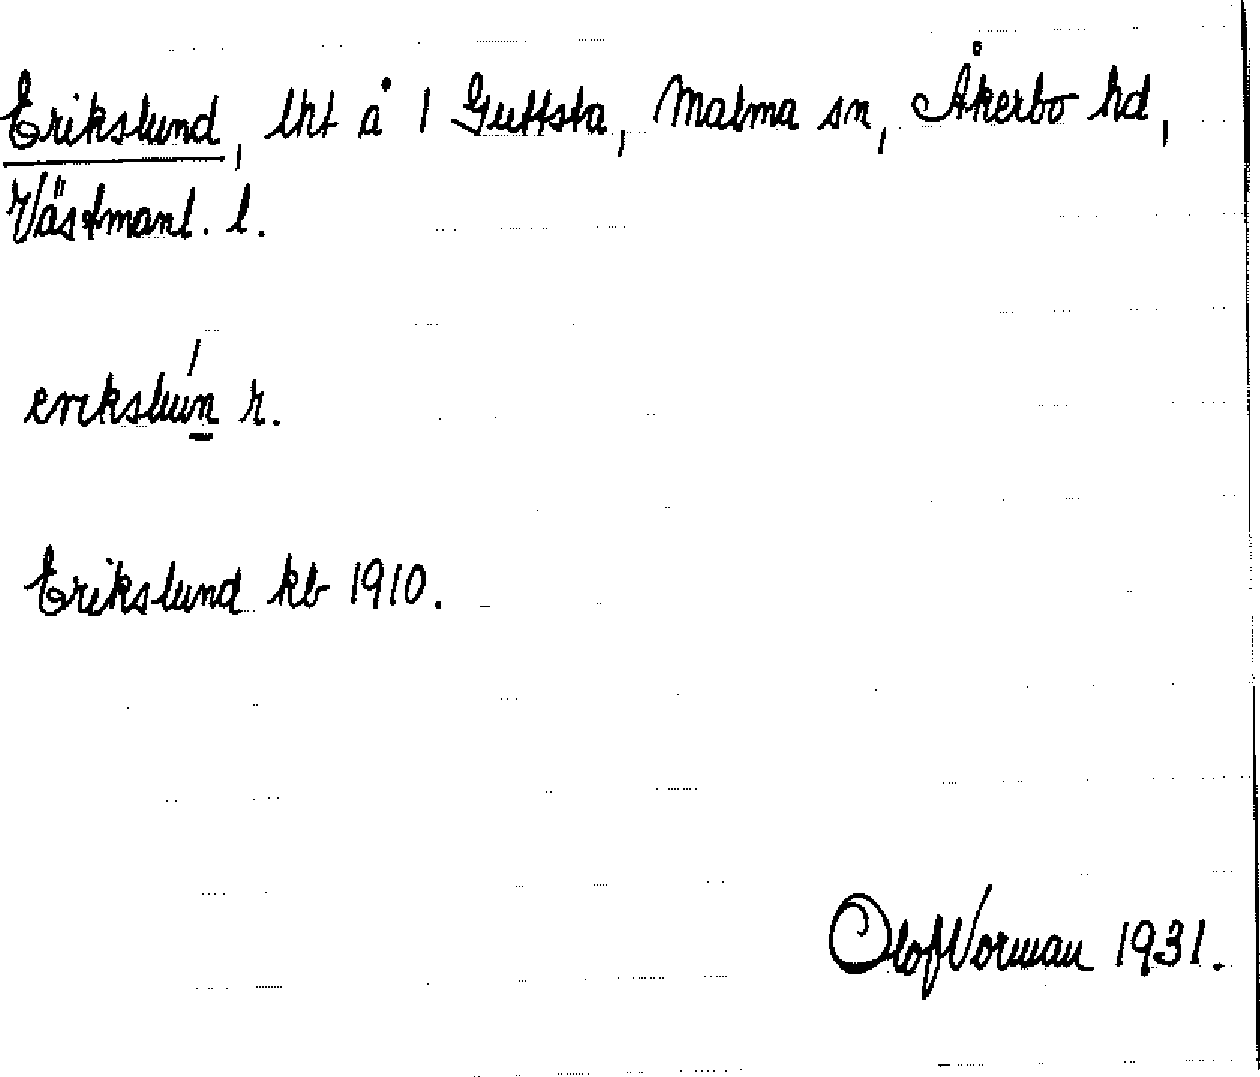 Erikslund, lht å 1 Guttsta, Malma sn, Åkerbo hd,
Västmanl. l.
erikslun r.
Erikslund kb 1910.
Olof Vorman 1931.